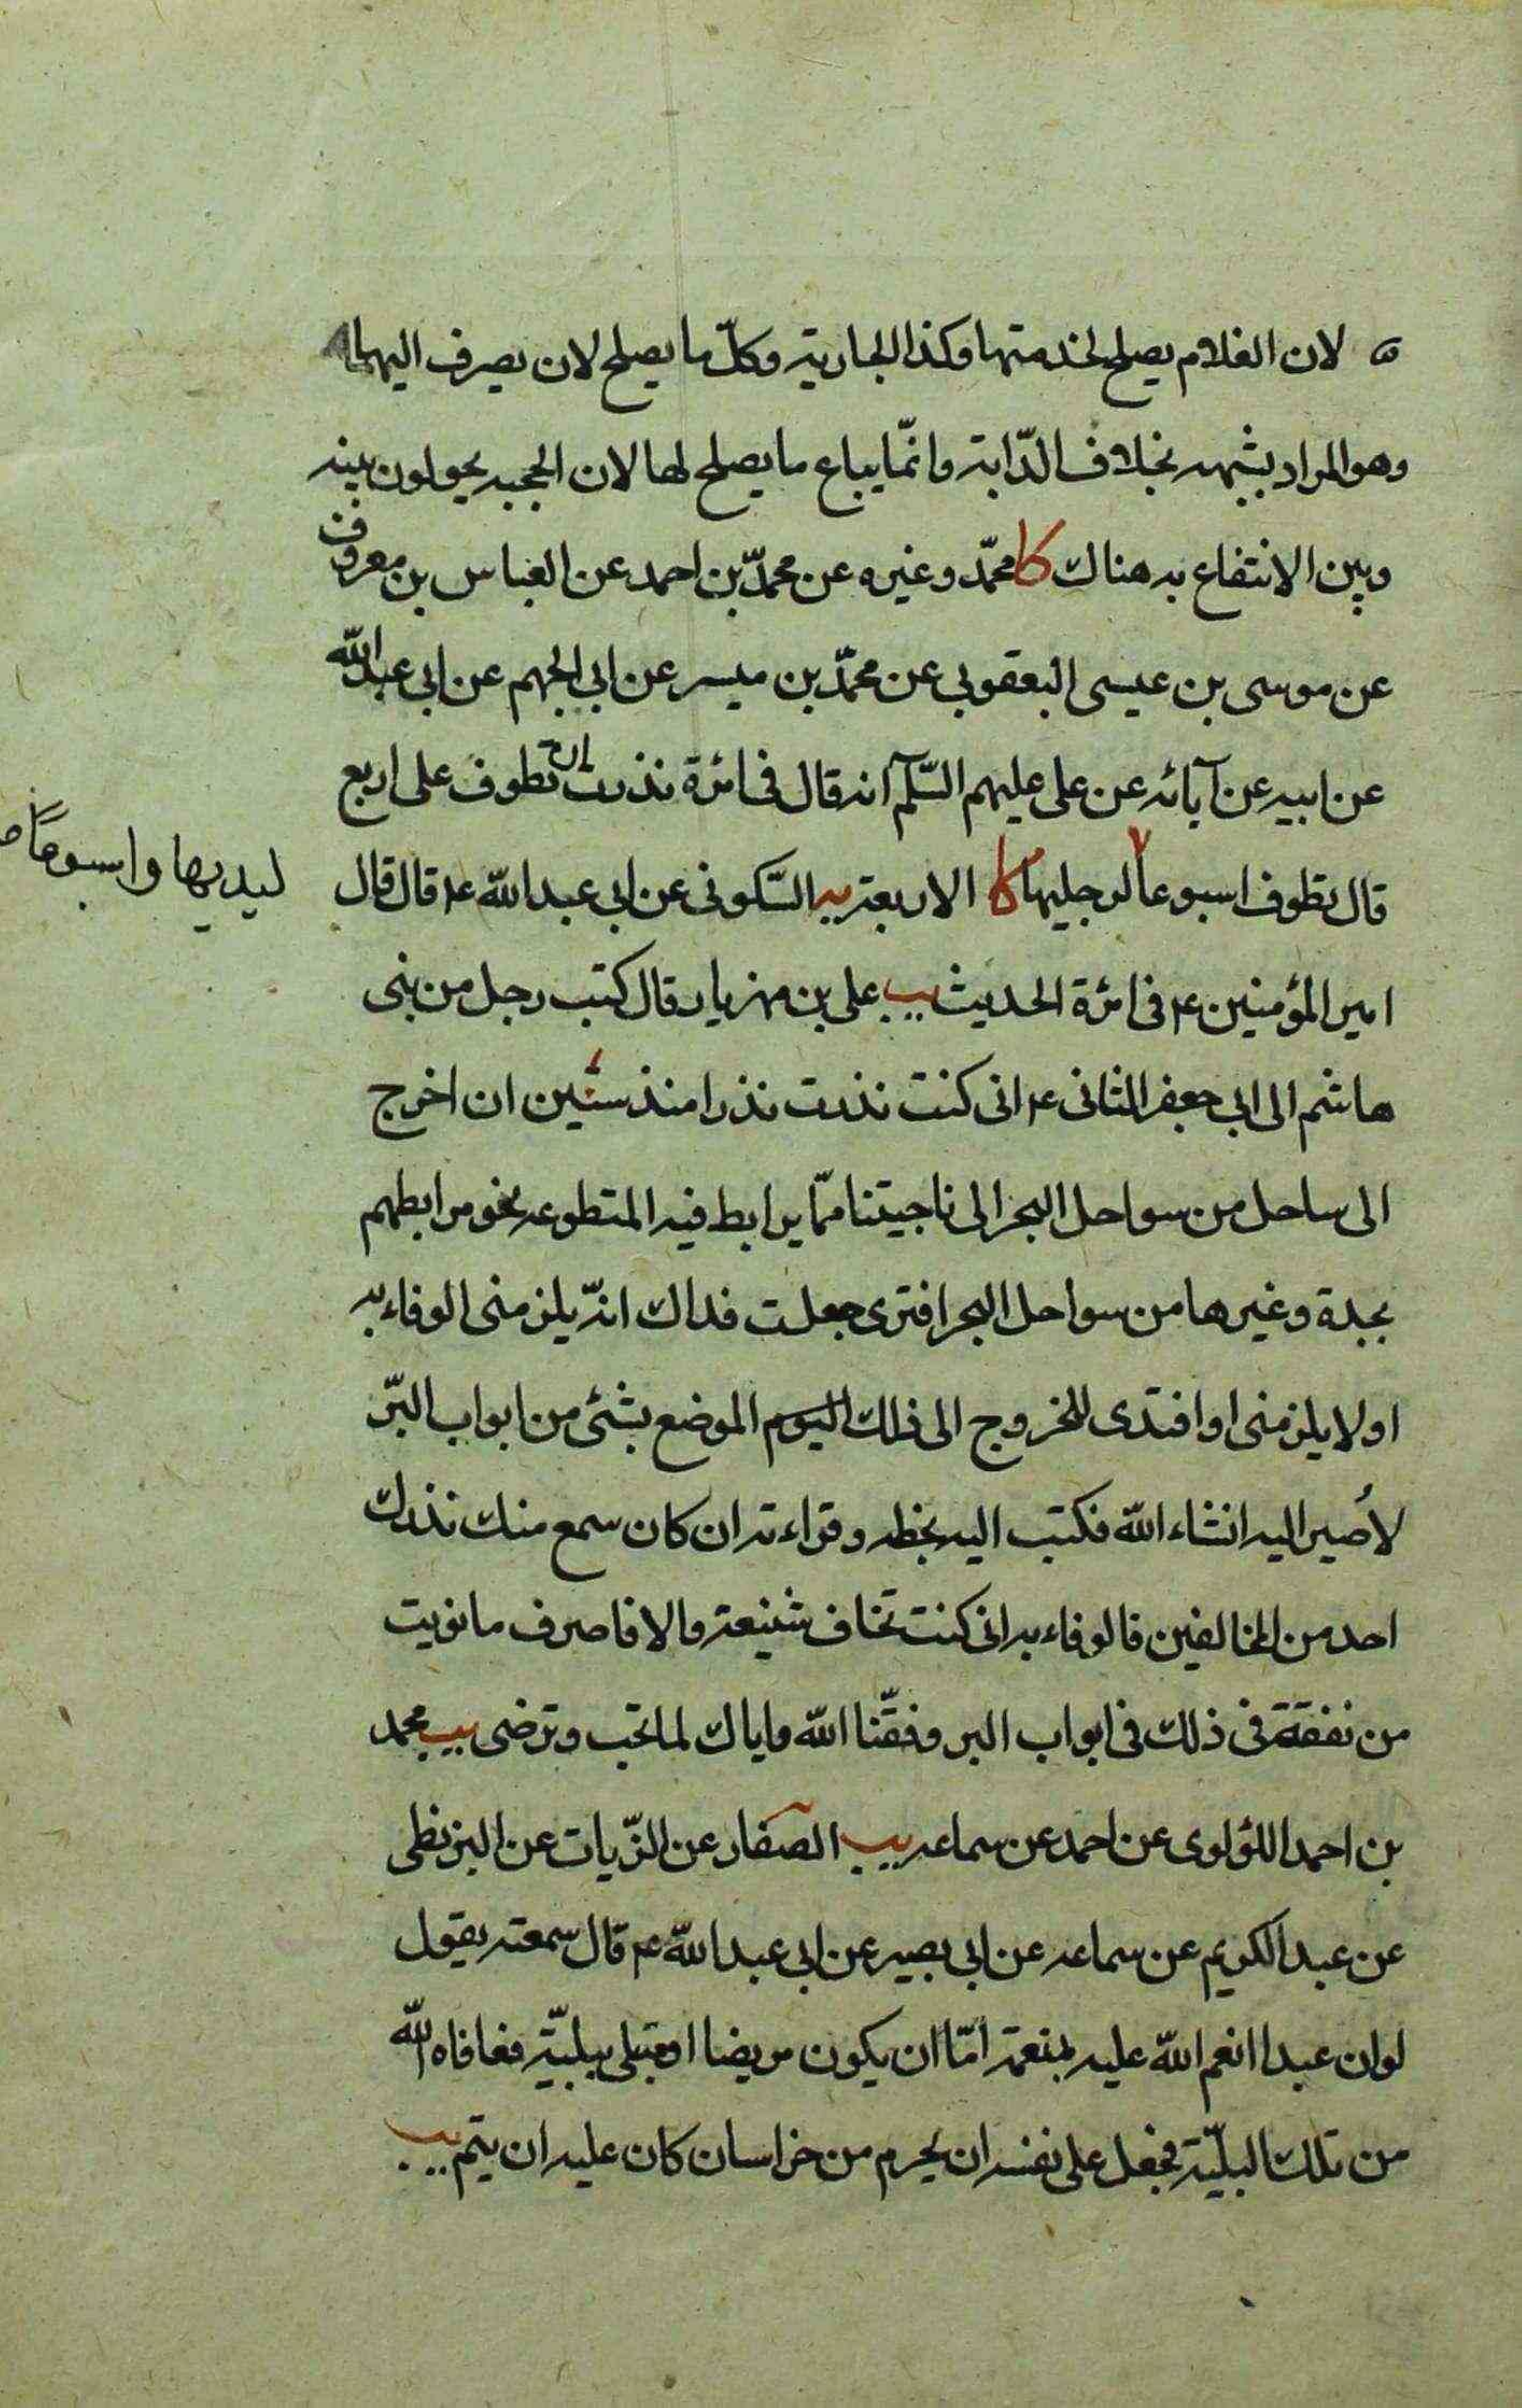 لان الغلام يصلح لخدمتها وكذا الجارية وكلّ ما يصلح لان يصرف اليهما
وهو المراد بشبهه بخلاف الدّابة وانّما يباع ما يصلح لها لان الحجبه يحولون بينه
وبين الانتفاع به هناك كا محمّد وغيره عن محمّد بن احمد عن العباس بن معروف
عن موسى بن عيسى اليعقوبي عن محمّد بن ميسر عن ابي الجهم عن ابي عبد الله
عن ابيه عن آبائه عن على عليهم السّلم انه قال في امرئة نذرت ان تطوف على اربع
قال تطوف اسبوعا لرجليها كا الاربعة يه السّكونى عن ابى عبد الله ع قال قال
ليديها واسبوعًا
امير المؤمنين ع فى امرئة الحديث يب على بن مهزيار قال كتب رجل من بنى
هاشم الى ابى جعفر الثانى ع انى كنت نذرت نذرا منذ سنين ان اخرج
الى ساحل من سواحل البحر الى ناحيتنا ممّا يرابط فيه المتطوعه نحو مرابطهم
بجدة وغيرها من سواحل البحر افترى جعلت فداك انه يلزمنى الوفاء به
او لا يلزمنى او افتدى للخروج الى ذلك اليوم الموضع بشئى من ابواب البرّ
لأصير اليه انشاء الله فكتب اليه بخطه وقراءته ان كان سمع منك نذرك
احد من المخالفين فالوفاء به انى كنت تخاف شنيعة والا فاصرف ما نويت
من نفقة فى ذلك فى ابواب البر وفقّنا الله واياك لما تحب وترضى يب محمد
بن احمد اللؤلوى عن احمد عن سماعه يب الصفار عن الزّيات عن البزنطى
عن عبد الكريم عن سماعه عن ابى بصير عن ابى عبد الله ع قال سمعته يقول
لو ان عبدا انعم الله عليه بنعمة امّا ان يكون مريضا او مبتلى ببليّة فعافاه الله
من تلك البليّة فجعل على نفسه ان يحرم من خراسان كان عليه ان يتم يب